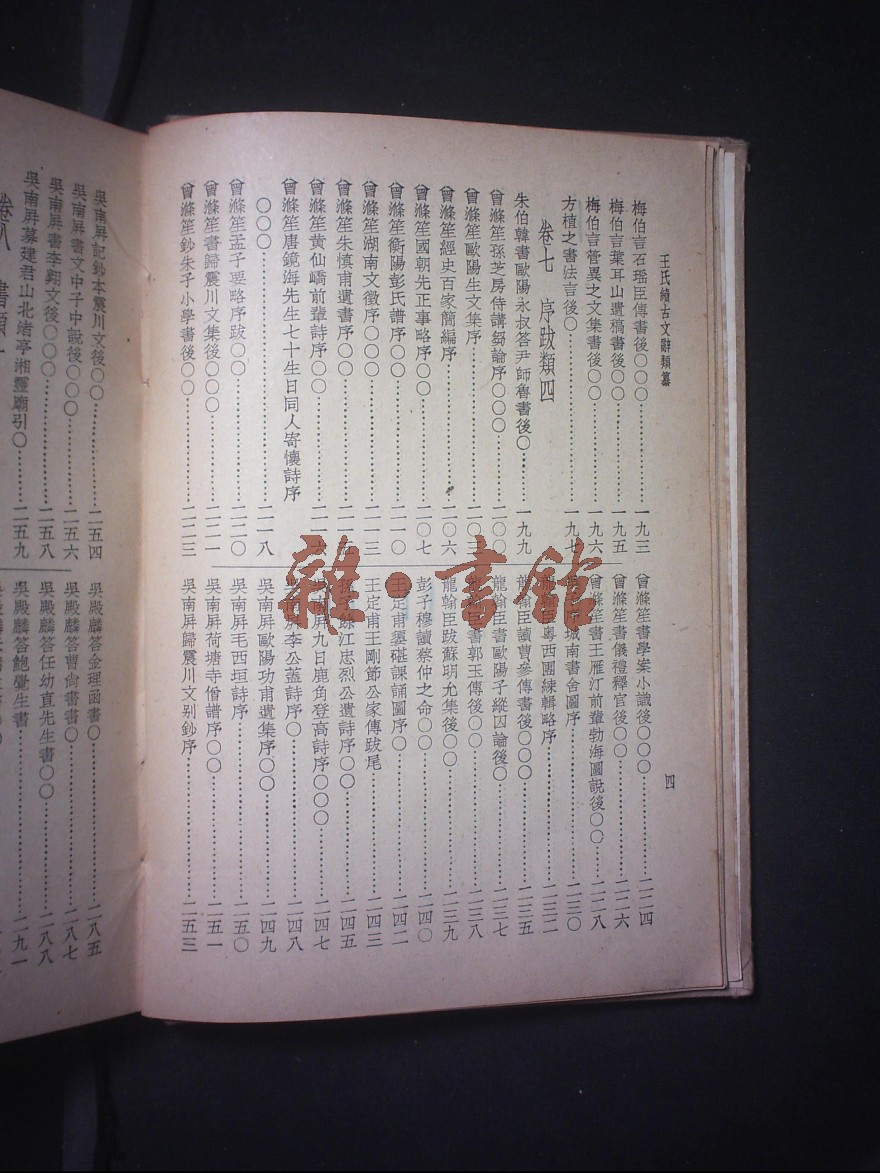 王氏續古文辭類纂
四
梅伯言石瑤臣傳書後〇〇〇……一九三
梅伯言葉耳山遺稿書後〇〇……一九五
梅伯言管異之文集書後〇〇……一九六
方植之書法言後〇……一九七
卷七 序跋類四
朱伯韓書歐陽永叔答尹師魯書後〇……一九九
曾滌笙孫芝房侍講芻論序〇〇〇……二〇〇
曾滌笙歐陽生文集序……二〇三
曾滌笙經史百家簡編序……二〇六
曾滌笙國朝先正事略序〇〇……二〇七
曾滌笙衡陽彭氏譜序〇〇……二一〇
曾滌笙湖南文徵序〇〇〇……二一三
曾滌笙朱慎甫遺書序〇〇……二一五
曾滌笙黄仙嶠前輩詩序〇〇……二一六
曾滌笙唐鏡海先生七十生日同人寄懷詩序
〇〇〇……二一八
曾滌笙孟子要略序跋〇〇……二二〇
曾滌笙書歸震川文集後〇〇〇……二二一
曾滌笙鈔朱子小學書後〇〇……二二三
曾滌笙書學案小識後〇〇〇……二二四
曾滌笙書儀禮釋官後〇〇……二二六
曾滌笙書王雁汀前輩勃海圖說後〇〇……二二八
城南書舍圖序……二三〇
龍翰臣粵西團練輯略序……二三二
龍翰臣讀曹參傳書後〇〇〇……二三五
龍翰臣書歐陽子縱囚論後〇……二三七
龍翰臣書郭玉傳後〇〇……二三八
龍翰臣跋蘇明允集後〇〇……二三九
彭子穆讀蔡仲之命〇〇……二四〇
王定甫媭碪課誦圖序〇……二四二
王定甫王剛節公家傳跋尾……二四三
孫江忠烈公遺詩序〇〇……二四五
吳南屏九日鹿角登高詩序〇〇〇……二四七
吳南屏李公蓋詩序〇……二四八
吳南屏歐陽功甫遺集序〇〇……二四九
吳南屏毛西垣詩序……二五〇
吳南屏荷塘寺僧譜序〇〇……二五一
吳南屏歸震川文别鈔序……二五三
吳南屏記鈔本震川文後〇〇……二五四
吳南屏書文中子中說後〇〇……二五六
吳南屏書李翺文後〇〇〇……二五八
吳南屏募建君山北渚亭湘靈廟引〇……二五九
卷八 書類一
吳殿麟答金理函書〇……二八五
吳殿麟答曹尙書書〇……二八七
吳殿麟答任幼直先生書〇〇……二八八
吳殿麟答鮑覺生書……二九一
雜·書館